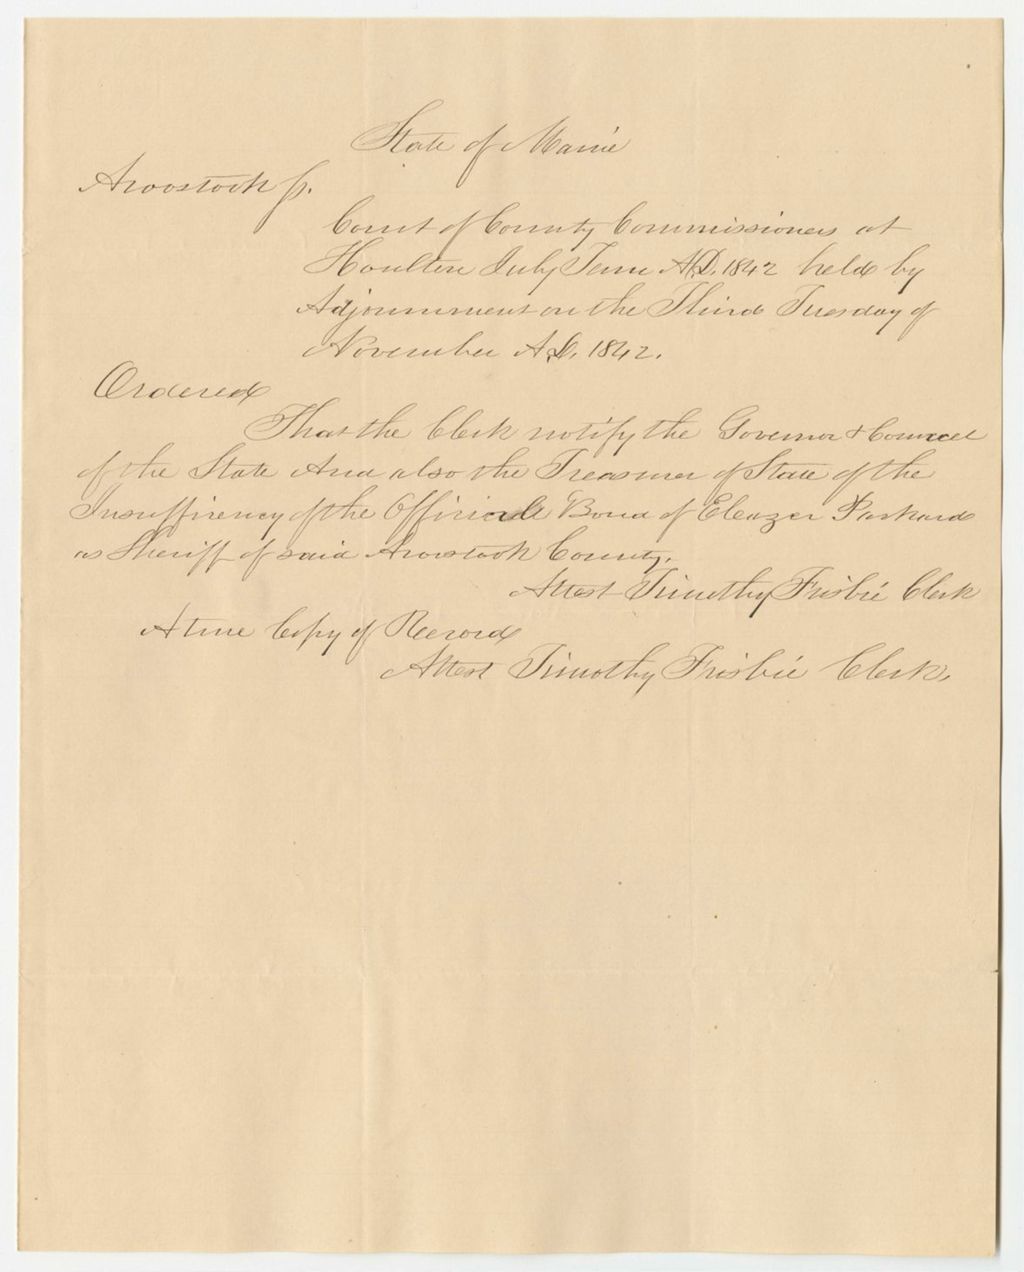 State of Maine
Aroostook ss.
Court of County Commissioners at
Houlton July Term A.D. 1842 held by
Adjournment on the Third Tuesday of
November A.D. 1842.
Ordered
That the Clerk notify the Governor & Councel
of the State And also the Treasurer of State of the
Insufficiency of the Officiale Bond of Eleazer Packard
as Sheriff of said Aroostook County.
Attest Timothy Frisbie Clerk
A true Copy of Record
Attest Timothy Frisbie Clerk.